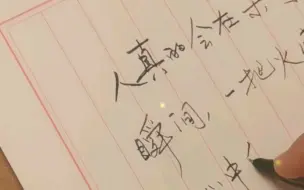 人真的会在某
瞬间，一把火
中